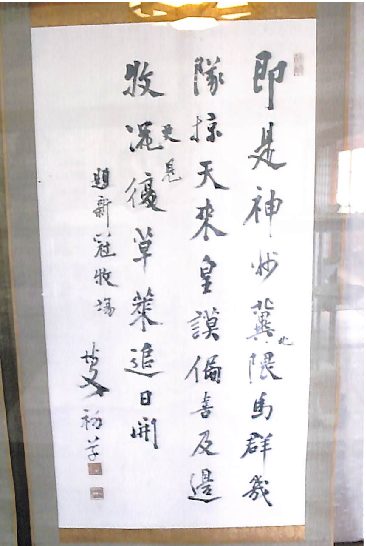 即是神州冀北隈馬群幾
隊掠天來皇謨偏喜及邊
牧況復草萊追日開
更見
題新冠牧場
博文